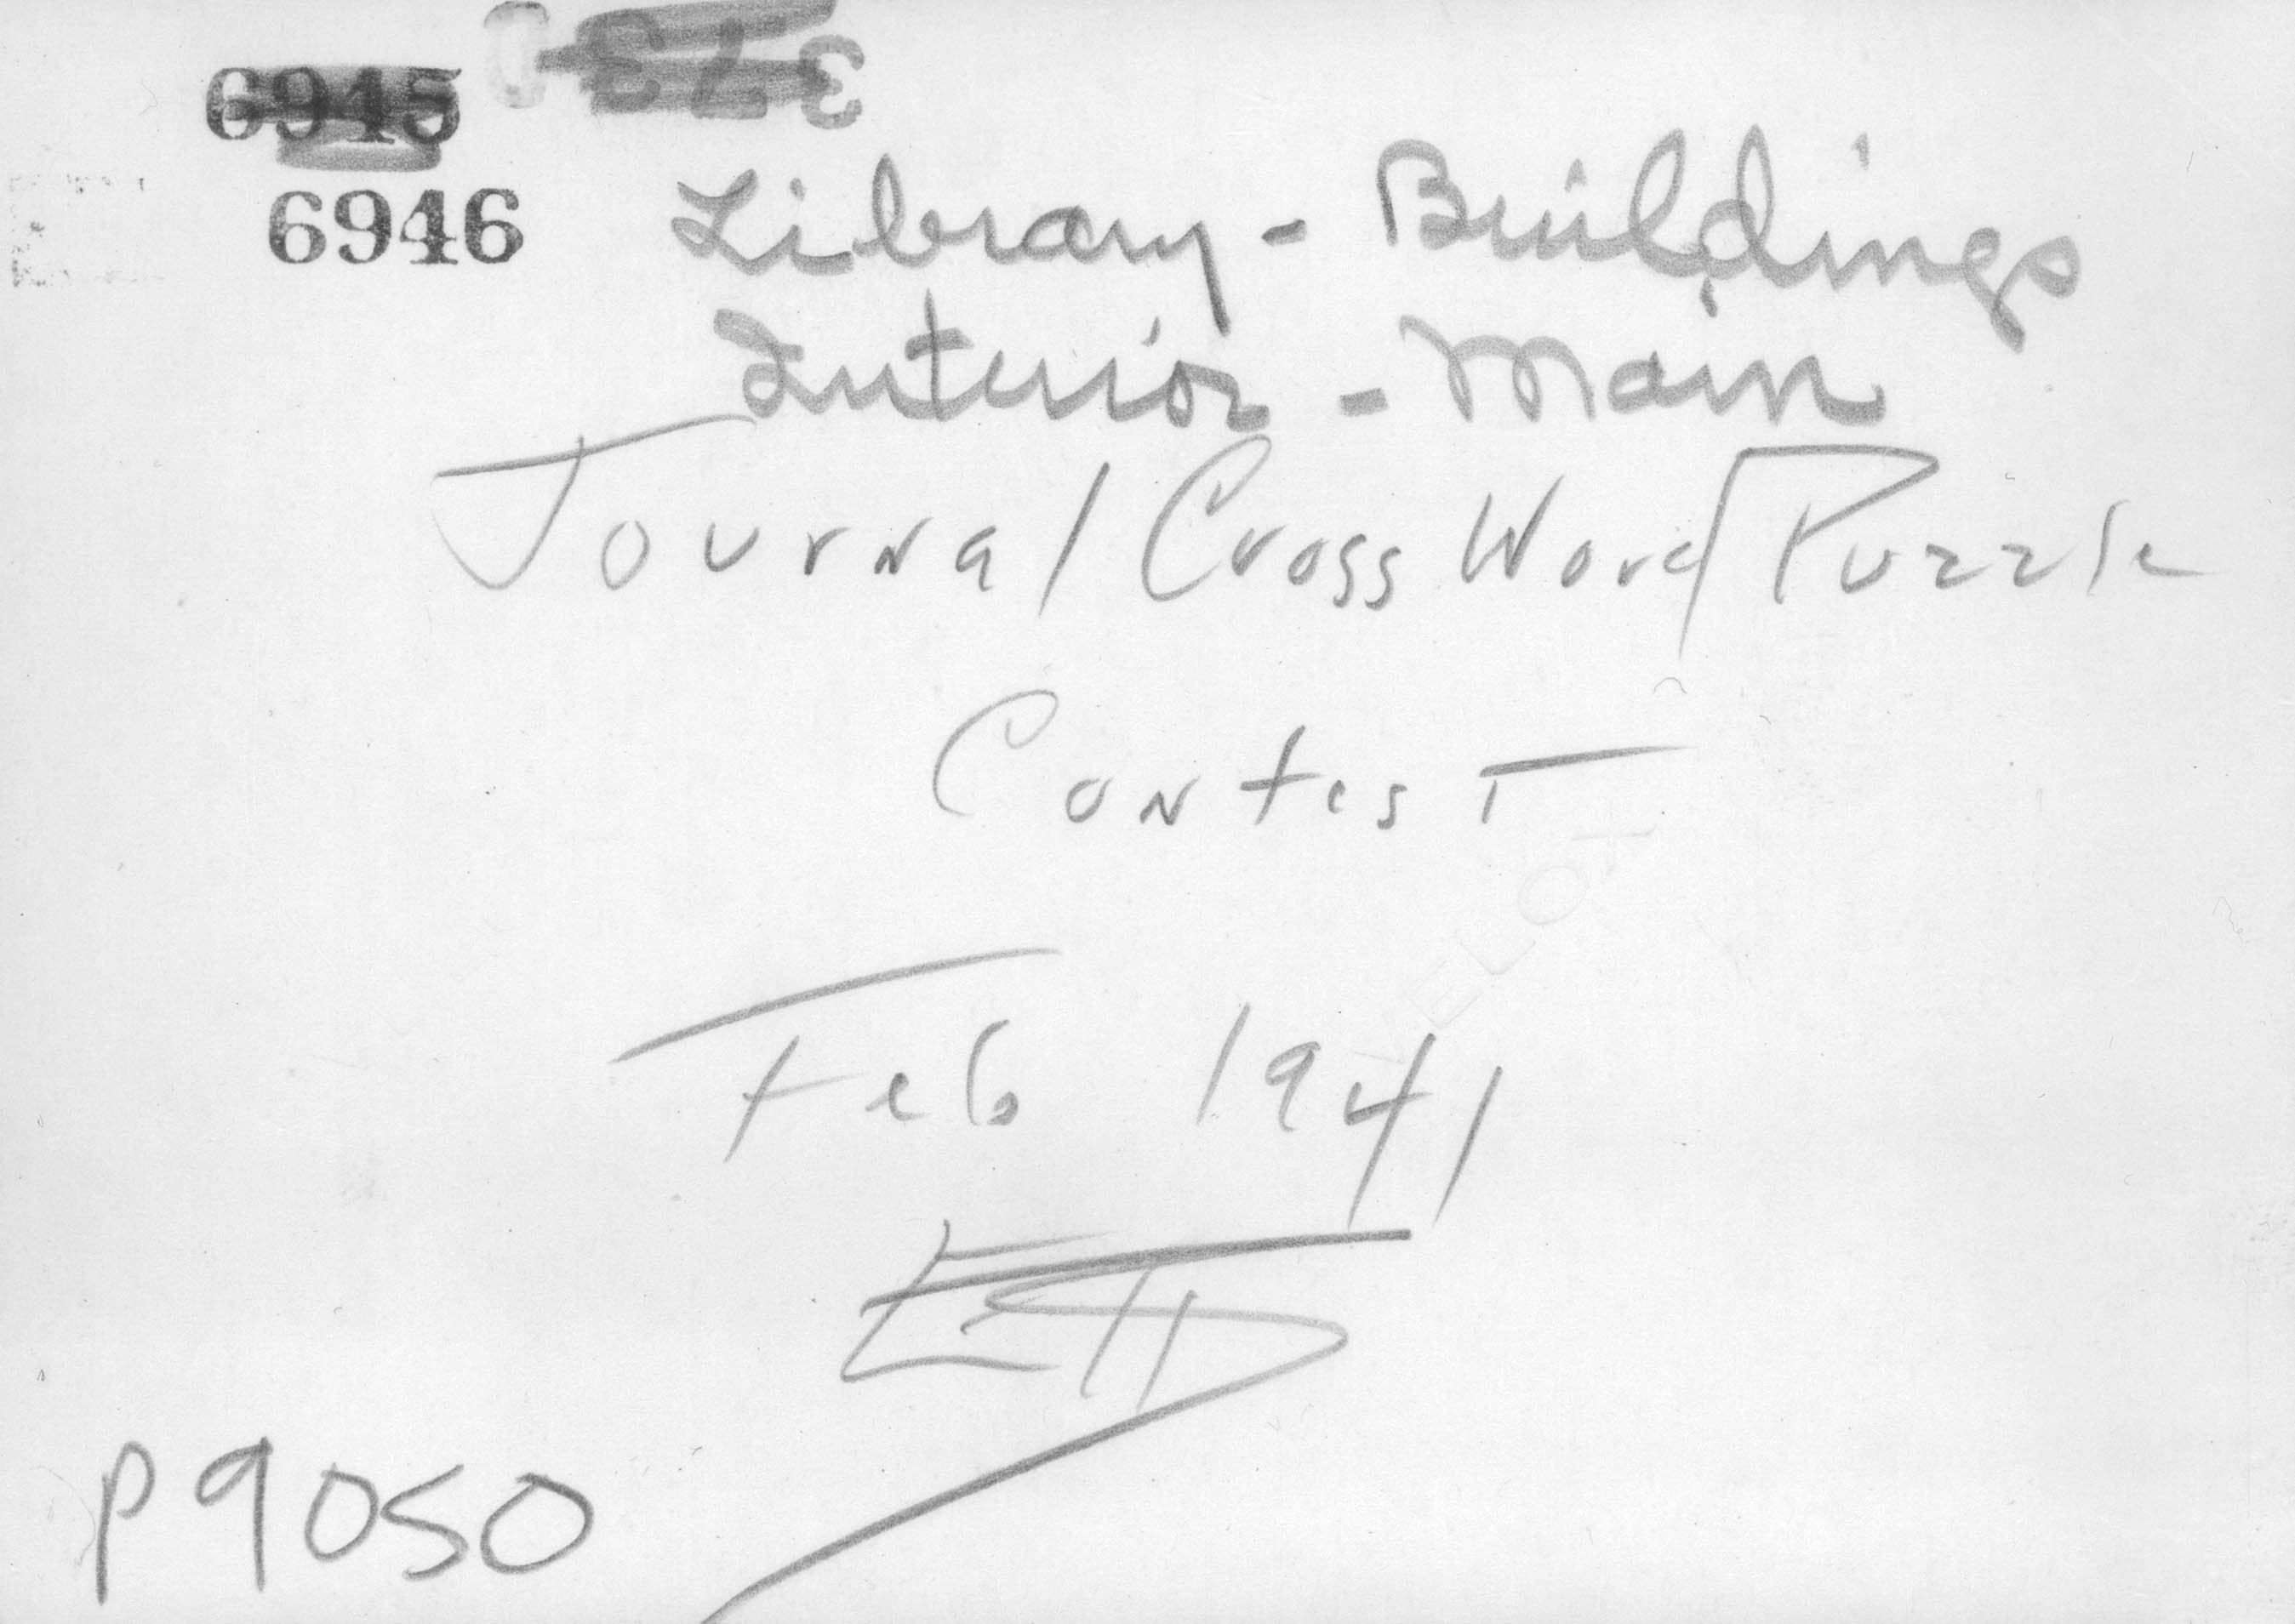 6945
6946
Library - Buildings
Interior - Main
Journal Cross Word Puzzle
Contest
Feb 1941
P9050